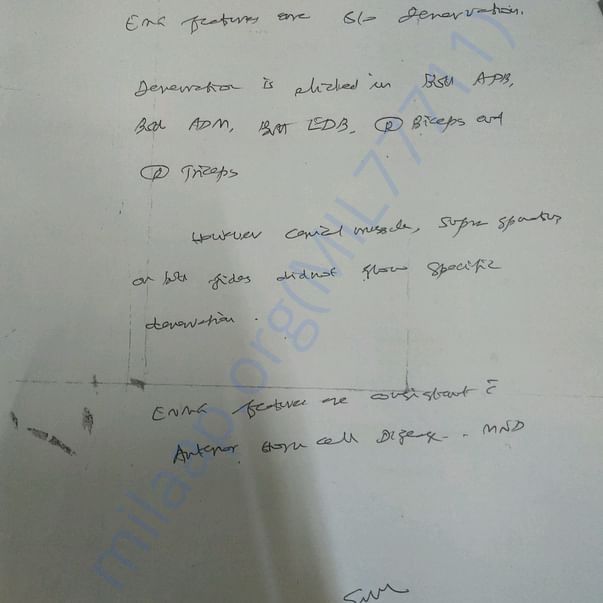 EMG features are S/o denervation.
Denervation is elicited in B/L APB,
ADM, EDB, Ⓡ Biceps and
Ⓡ Triceps
However muscle, supra
on both sides did not show specific
denervation.
ENMG features are consistant c̄
Anterior Horn cell Disease.. MND
milaap.org(MIL77711)